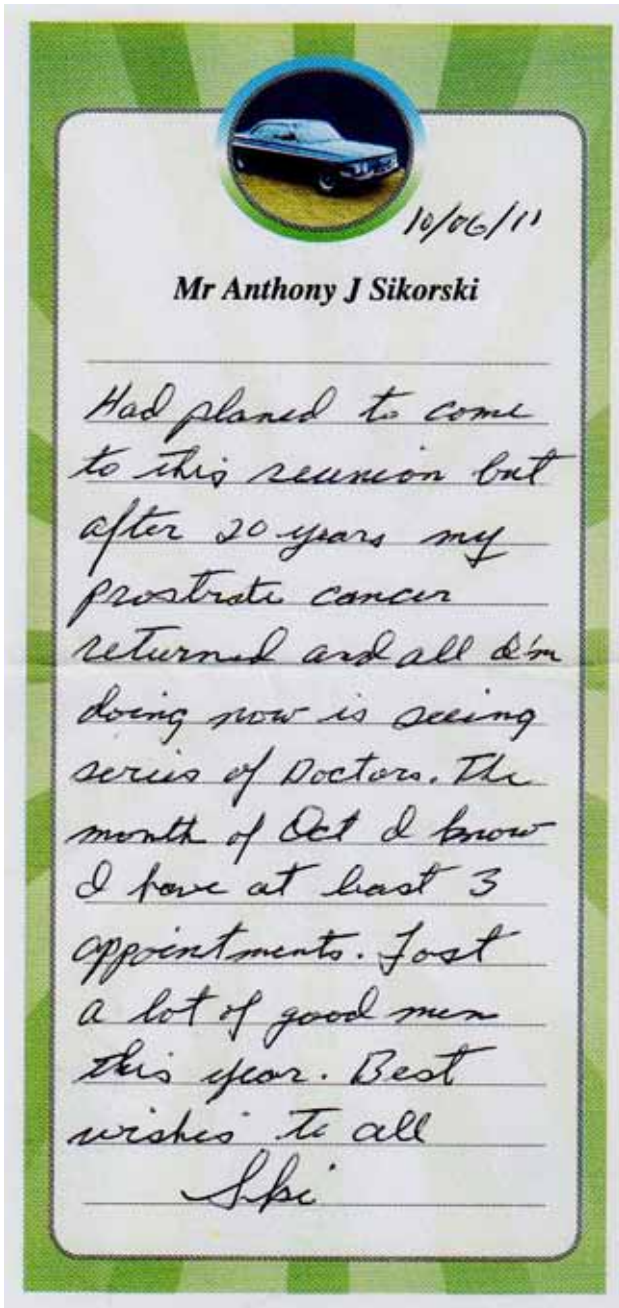 10/06/11
Mr Anthony J Sikorski
Had planed to come
to this reunion but
after 20 years my
prostrate cancer
returned and all I'm
doing now is seeing
series of Doctors. The
month of Oct I know
I have at least 3
appointments. Lost
a lot of good men
this year. Best
wishes to all
Ski